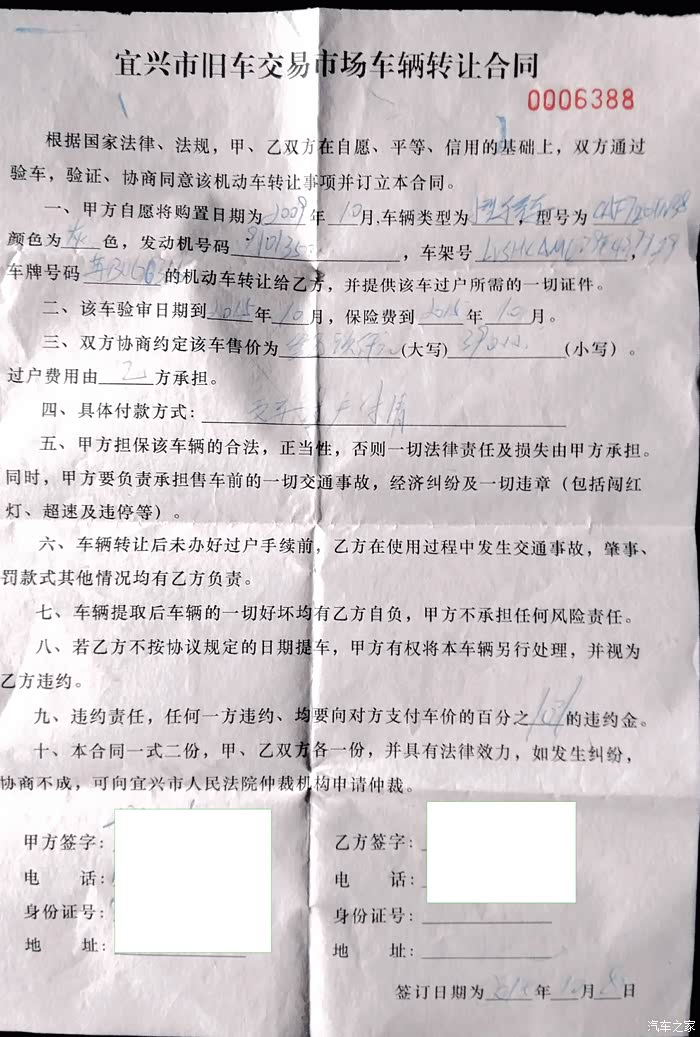 宜兴市旧车交易市场车辆转让合同
0006388
根据国家法律、法规，甲、乙双方在自愿、平等、信用的基础上，双方通过
验车，验证、协商同意该机动车转让事项并订立本合同。
一、甲方自愿将购置日期为2009年10月,车辆类型为 ，型号为
颜色为灰色，发动机号码 ，车架号 ，
车牌号码 的机动车转让给乙方，并提供该车过户所需的一切证件。
二、该车验审日期到2015年10月，保险费到2015年10月。
三、双方协商约定该车售价为 (大写) (小写)。
过户费用由乙方承担。
四、具体付款方式：
五、甲方担保该车辆的合法，正当性，否则一切法律责任及损失由甲方承担。
同时，甲方要负责承担售车前的一切交通事故，经济纠纷及一切违章（包括闯红
灯、超速及违停等）。
六、车辆转让后未办好过户手续前，乙方在使用过程中发生交通事故，肇事、
罚款式其他情况均有乙方负责。
七、车辆提取后车辆的一切好坏均有乙方自负，甲方不承担任何风险责任。
八、若乙方不按协议规定的日期提车，甲方有权将本车辆另行处理，并视为
乙方违约。
九、违约责任，任何一方违约、均要向对方支付车价的百分之 的违约金。
十、本合同一式二份，甲、乙双方各一份，并具有法律效力，如发生纠纷，
协商不成，可向宜兴市人民法院仲裁机构申请仲裁。
甲方签字：
电 话：
身份证号：
地 址：
乙方签字：
电 话：
身份证号：
地 址：
签订日期为 年10月 日
汽车之家